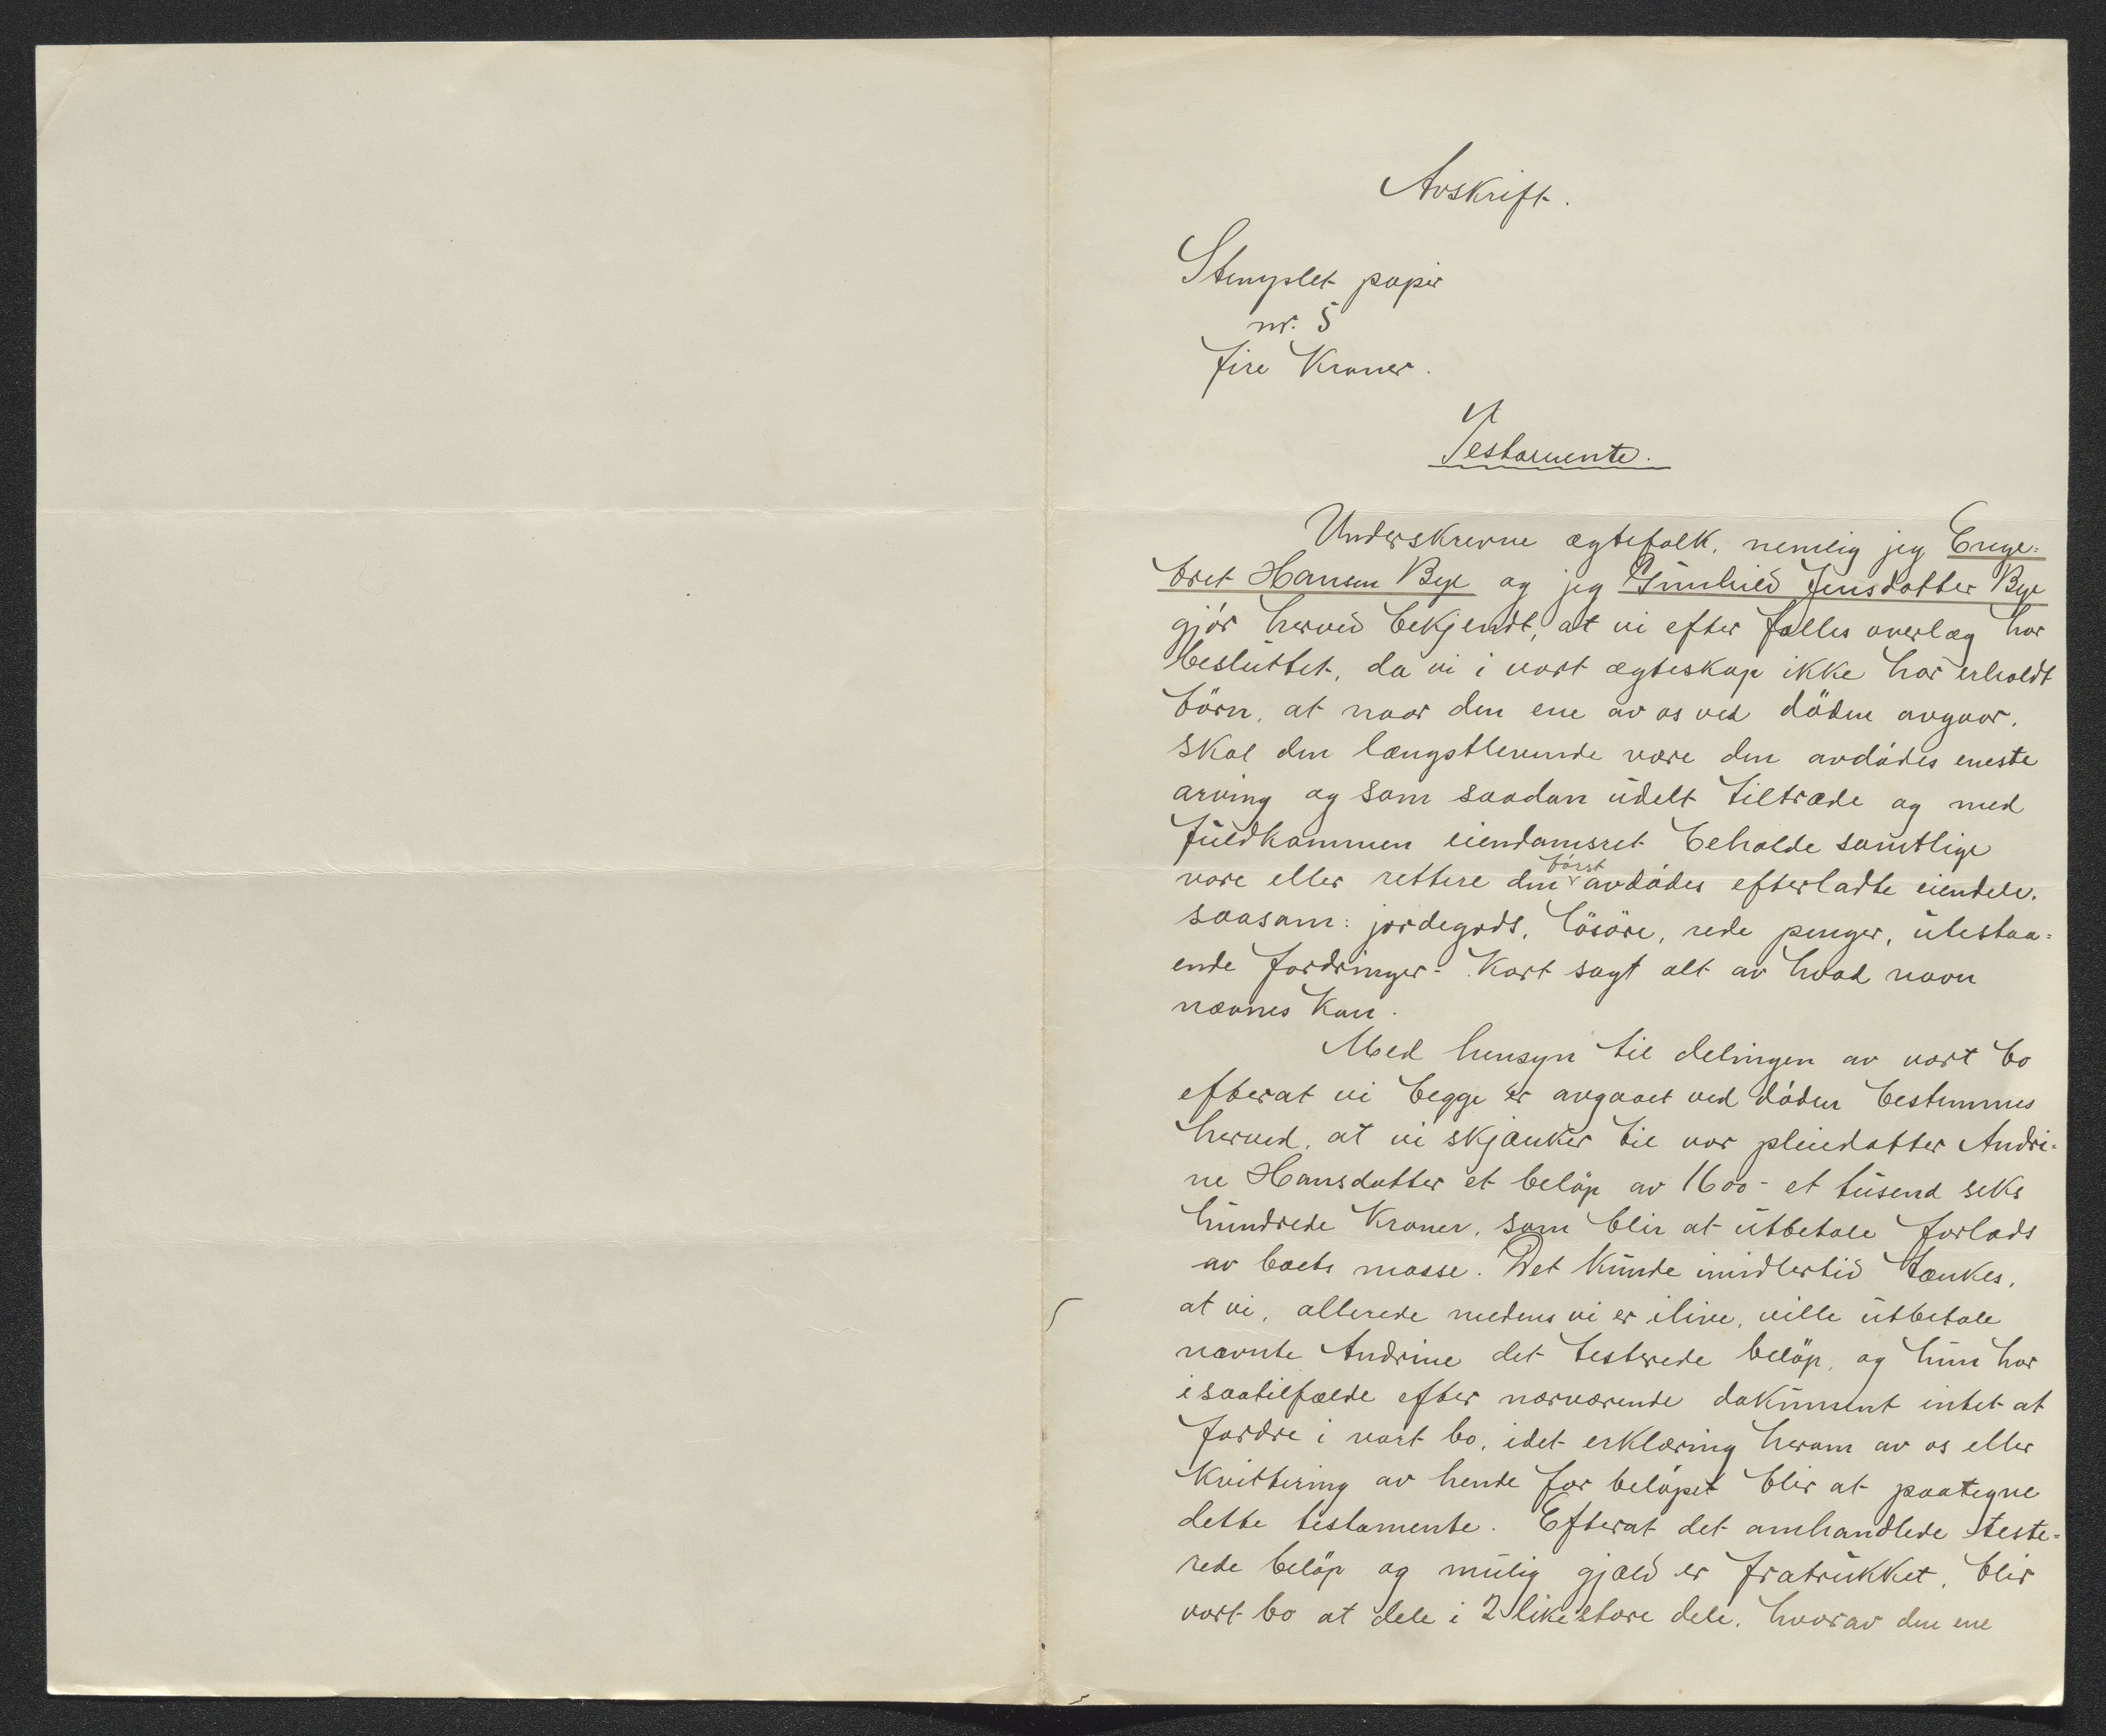 Avskrift.
Stemplet papir
nr. 5
fire Kroner.
Testamente.
Underskrevne egtefolk, nemlig jeg Enge=
bret Hansen Bye og jeg Gunhild Jensdatter Bye
gjör herved bekjendt, at vi efter fælles overlæg har
besluttet, da vi i vort egteskap ikke har erholdt
börn, at naar den ene av os ved döden avgaar,
skal den længstlevende være den avdödes eneste
arving og som saadan udelt tiltræde og med
fuldkommen eiendomsret beholde samtlige
vore eller rettere den först avdödes efterladte eiendele,
saasom: jordegods, lösöre, rede penger, utestaa=
ende fordringer - Kort sagt alt av hvad navn
nævnes Kan.
Med hensyn til delingen av vort bo
efterat vi begge er avgaaet ved döden bestemmes
herved, at vi skjænker til vor pleiedatter Andri=
ne Hansdatter et belöp av 1600 - et tusend seks
hundrede Kroner, som blir at utbetale forlods
av boets masse. Det Kunde imidlertid tænkes,
at vi, allerede medens vi er ilive, ville utbetale
nævnte Andrine det testerede belöp, og hun har
isaatilfælde efter nærværende dokument intet at
fordre i vort bo, idet erklæring herom av os eller
Kvittering av hende for belöpet blir at paategne
dette testamente. Efterat det omhandlede teste=
rede belöp og mulig gjæld er fratrukket, blir
vort bo at dele i 2 like store dele, hvorav den ene